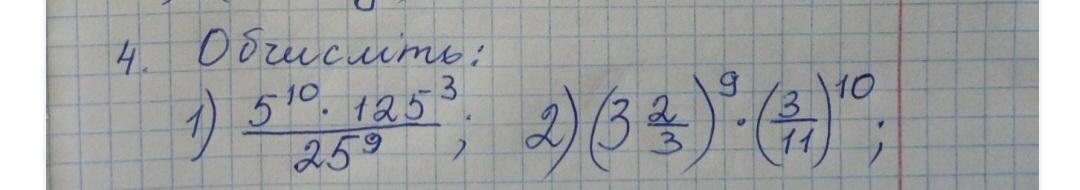 4. Обчисліть:
1) \frac{5^{10} \cdot 125^3}{25^9}; 2) \left(3\frac{2}{3}\right)^9 \cdot \left(\frac{3}{11}\right)^{10};